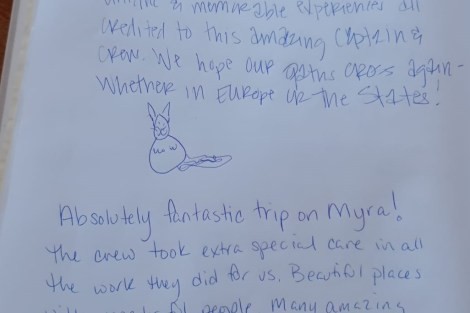 & memorable experiences all
credited to this amazing Captain &
crew. We hope our paths cross again -
Whether in Europe or the States!
Absolutely fantastic trip on Myra!
The crew took extra special care in all
the work they did for us. Beautiful places
people. Many amazing